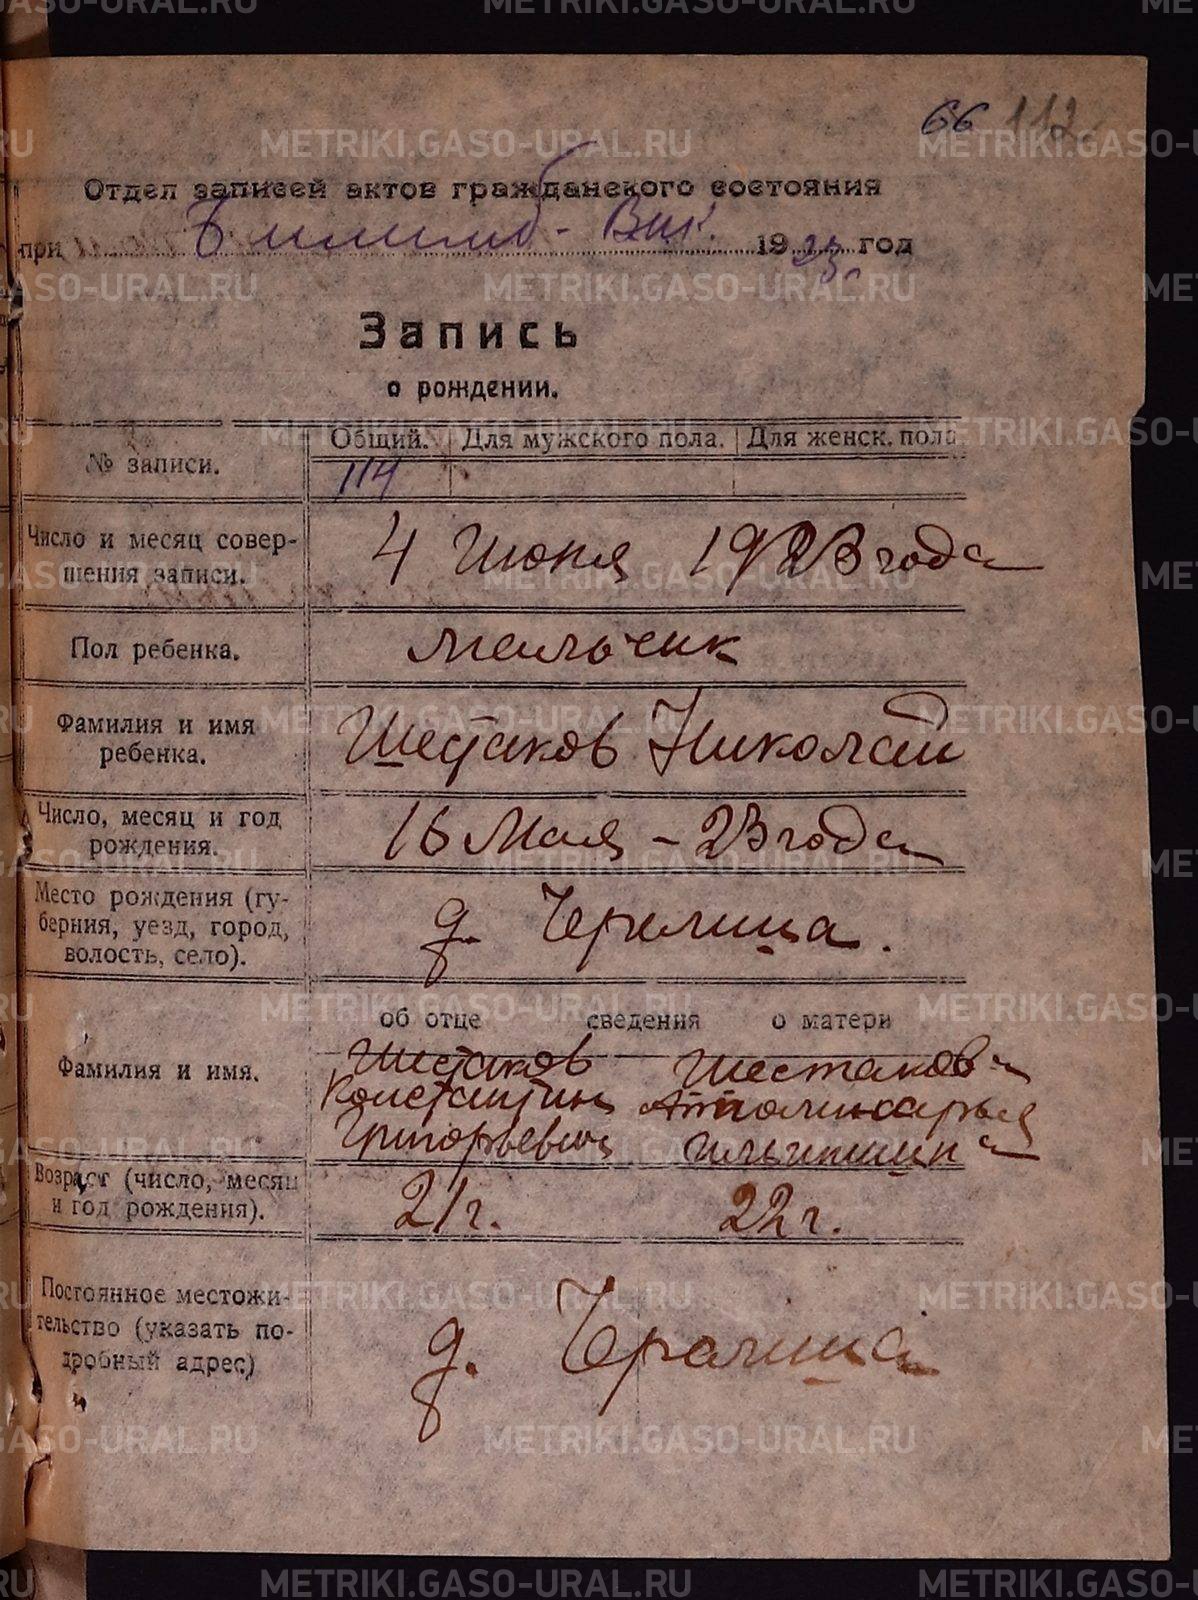 66 112
Отдел записей актов гражданского состояния
при Билимб- Вик. 1923 год
Запись
о рождении.
№ записи.
Общий. Для мужского пола. Для женск. пола
114
Число и месяц совер-
шения записи.
4 Июня 1923 года
Пол ребенка.
мальчик
Фамилия и имя
ребенка.
Шестаков Николай
Число, месяц и год
рождения.
16 Мая - 23 года
Место рождения (гу-
берния, уезд, город,
волость, село).
д. Черемша.
об отце сведения о матери
Фамилия и имя.
Шестаков
Константин
Григорьевич
Шестакова
Апполинарья
Возраст (число, месяц
и год рождения).
21 г. 22 г.
Постоянное местожи-
тельство (указать по-
дробный адрес)
д.
METRIKI.GASO-URAL.RU